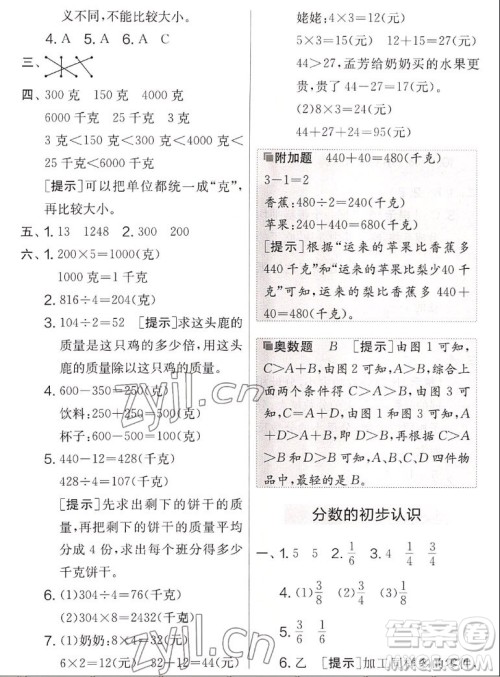 义不同,不能比较大小。
4. A　5. A　6. A　C
三、
四、300克　150克　4000克
6000千克　25千克　3克
3克<150克<300克<4000克<
25千克<6000千克
[提示]可以把单位都统一成“克”,
再比较大小。
五、1. 13　1248　2. 300　200
六、1. 200×5=1000(克)
1000克=1千克
2. 816÷4=204(克)
3. 104÷2=52　[提示]求这头鹿
的质量是这只鸡的多少倍,用这头
鹿的质量除以这只鸡的质量。
4. 600-350=250(克)
饮料:250+250=500(克)
杯子:600-500=100(克)
5. 440-12=428(千克)
428÷4=107(千克)
[提示]先求出剩下的饼干的质量,
再把剩下的饼干的质量平均
分成4份,即可求出每个班分得多少
千克饼干。
6. (1)304÷4=76(千克)
(2)304×8=2432(千克)
7. (1)奶奶:8×4=32(元)
6×2=12(元)　32+12=44(元)
姥姥:4×3=12(元)
5×3=15(元)　12+15=27(元)
44>27,孟芳给奶奶买的水果更
贵,贵了。
(2)8×3=24(元)
44+27+24=95(元)
附加题　440+40=480(千克)
3-1=2
香蕉:480÷2=240(千克)
苹果:240+440=680(千克)
[提示]根据“运来的苹果比香蕉多
440千克”和“运来的苹果比梨少40千
克”可知,运来的梨比香蕉多
440+40=480(千克)。
奥数题　B　[提示]由图1可知,
C>A+B,由图2可知,A>B,综合上
面两个条件得到:C>A>B,由图3可
知,C=A+D,由图1和图3可知,
A+D>A+B,即D>B,再根据C>
A>B,可知,A、B、C、D四件物
品中,最轻的是B。
分数的初步认识
一、1. 5　5　2. 1/6　3. 4　1/4　3/4
4. (1)3/8　(2)3/8
5. 3/6　1/6
6. 乙　[提示]加工同样多的零件,